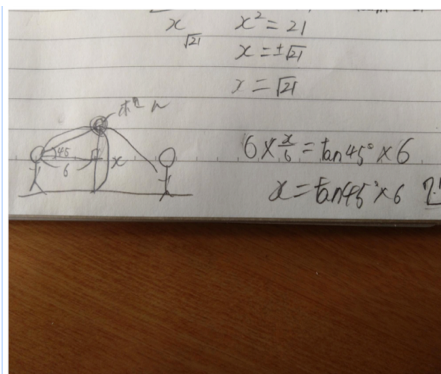 x
√21
x² = 21
x = ±√21
x = √21
45
6
x
6 × x/6 = tan45° × 6
x = tan45° × 6